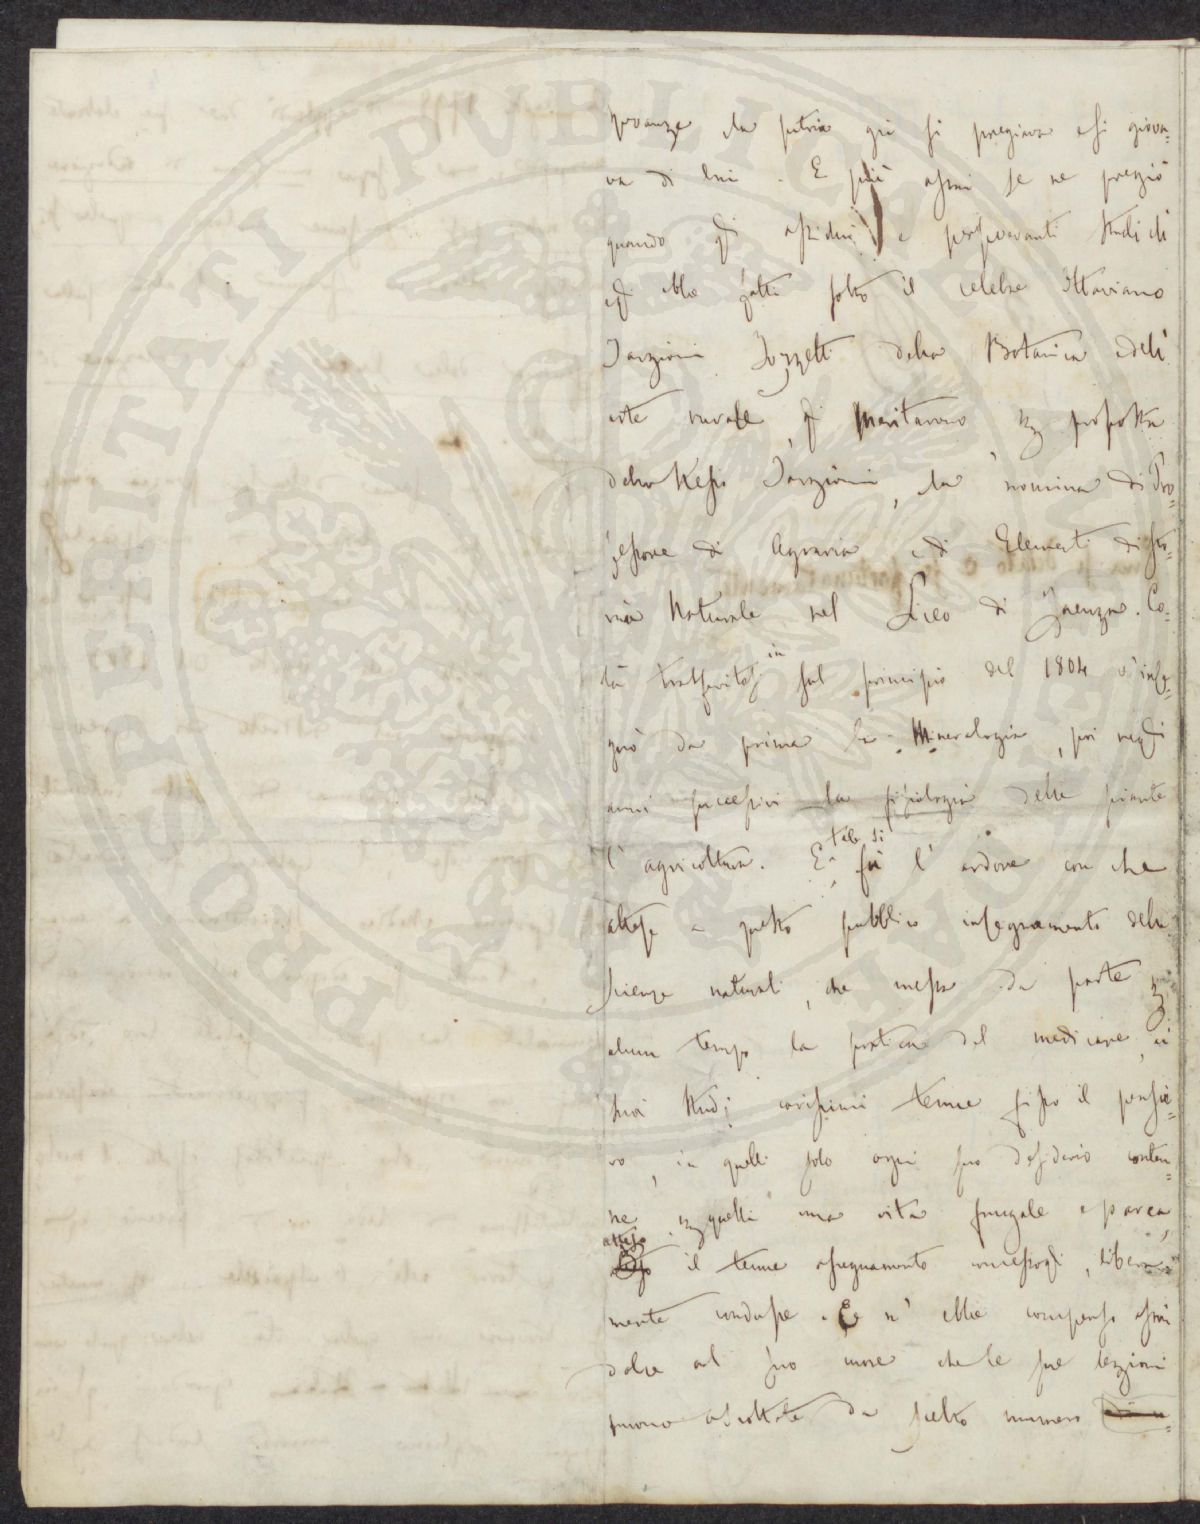 la patria già si pregiava e si giova=
va di lui. E più assai se ne pregiò
quando gli assidui e perseveranti studi ch'
egli ebbe fatti sotto il celebre Ottaviano
Targioni Tozzetti della Botanica e dell'
arte rurale, gli meritarono per proposta
dello stesso Targioni, la nomina di Pro=
fessore di Agraria e di Elementi di Sto=
ria Naturale nel Liceo di Faenza. Co=
là trasferitosi in sul principio del 1804 v'inse=
gnò da prima la Mineralogia, poi negli
anni successivi la fisiologia delle piante
l'agricoltura. E tale si fu l'ardore con che
attese a questo pubblico insegnamento delle
scienze naturali, che messa da parte per
alcun tempo la pratica del medicare, ai
suoi studj carissimi tenne fisso il pensie=
ro, in quelli solo ogni suo desiderio conten=
ne, per quelli una vita frugale e parca,
atteso il tenue assegnamento concessogli, libera=
mente condusse. E n'ebbe compenso assai
dolce al suo cuore che le sue lezzioni
furono ascoltate da scelto numero
PROSPERITATI PVBLICAE